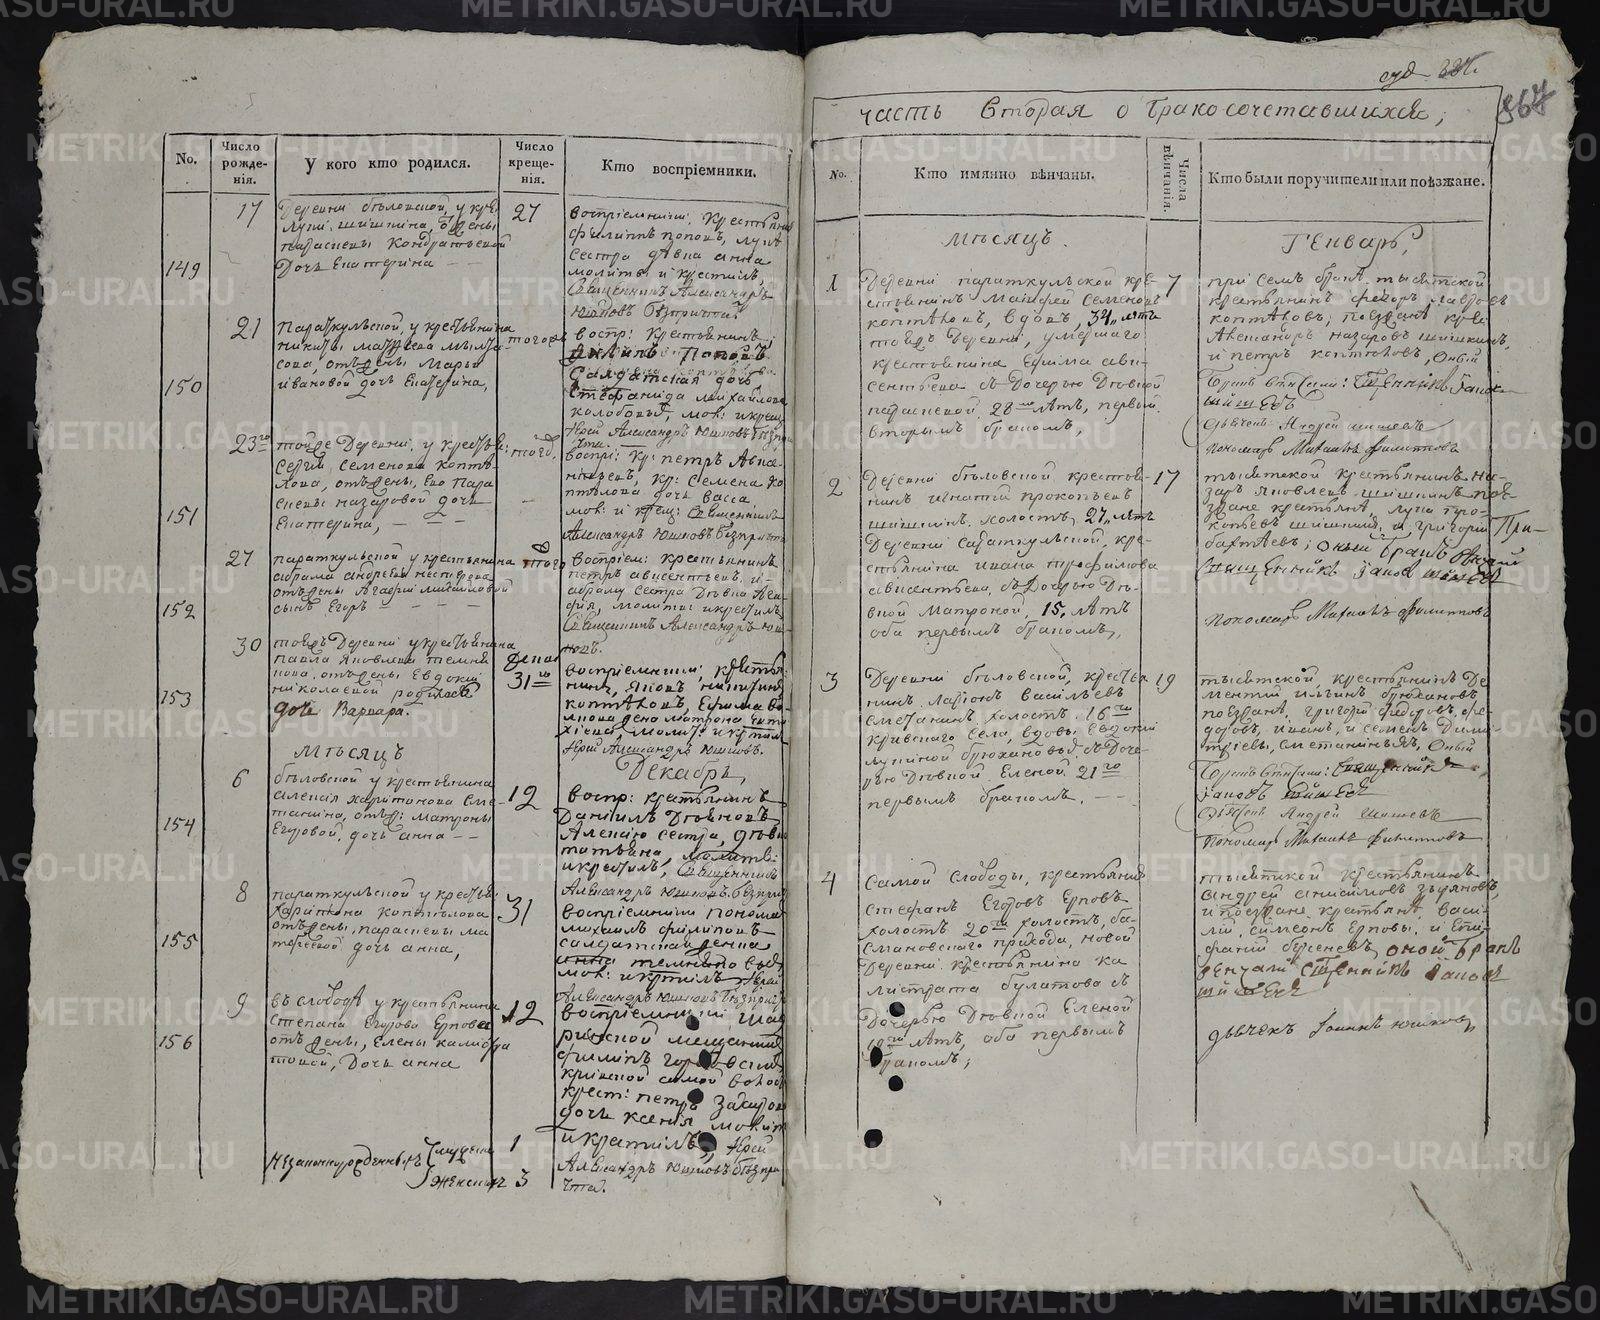 No.
Число рожде-нія.
У кого кто родился.
Число креще-нія.
Кто воспріемники.
149
17
Деревни бѣловской, у кре:
луки шишкина, отъ жены
параскевы Кондратьевой
Дочь Екатерина
27
воспріемники: крестьянинъ
филиппъ поповъ, луки
сестра дѣвка анна
молитв: и крестилъ,
Священникъ Александръ
Юшковъ безпричта.
150
21
Параткульской, у крестьянина
никиты матвѣева
отъ жены, Марьи
ивановой дочь Екатерина,
тогожъ
воспр: крестьянинъ,
Поповъ
Салдатская дочь,
Стефанида михайлова
мол: и крещ:
Іерей Александръ Юшковъ безпри
чта.
151
23го
тойже Деревни, у крестья:
Сергія семенова копты-
лова, отъ жены, Его Пара
скевы назаровой дочь
Екатерина,
тогож.
воспрі: кр: петръ Авксе-
нтьевъ, кр: семена ко
птылова дочь васса
мол: и крещ: Священникъ
Александръ Юшковъ безпричта
152
27
параткульской у крестьянина
абрама андреева нестерова
отъ жены Агафьи михайловой
сынъ Егоръ
тогож
воспріем: крестьянинъ
петръ авксентьевъ, и
абраму сестра Дѣвка Ага-
фія, молитв: и крестилъ
Священникъ Александръ Юш-
ковъ.
153
30
тоежъ Деревни у крестьянина
павла Яковлева темни
кова, отъ жены Евдокіи
николаевой родилась
дочь Варвара.
Декаб
31го
воспріемники; крестья
нинъ, Яковъ никитинъ
коптяловъ, Ефима Во-
лкова жена матрона Евти
хіева, молит: и крстил
Іерей Александръ Юшковъ.
Мѣсяцъ
Декабрь,
154
6
бѣловской у крестьянина
алексія харитонова сме-
танина, отъ ж: матроны
Егоровой, дочь анна
12
воспр: крестьянинъ
Даніилъ
Алексію сестра, дѣвка
татьяна, молитв:
и крестилъ, Священникъ
Александръ Юшковъ безприч
155
8
параткульской у крестья:
харитона коптылова
отъ жены, параскевы ма
твеевой дочь анна,
31
воспріемники понома
михаилъ филипповъ
салдатская женка
анна
мол: и крстилъ Іерей
Александръ Юшковъ безприч
156
9
въ слободѣ у крестьянина
степана Егорова Ерпова
отъ жены, Елены калистра
товой, Дочь анна
12
воспріемники шад
ринской мещанинъ
филипъ
кривской самой вобод
крест: петра Захаров
дочь ксенія молит
и крстилъ, Іерей
Александръ Юшковъ безпри
чта.
Незаконнорожденныхъ
мущенъ 1
женскихъ 3
часть вторая о Бракосочетавшихся;
367
No.
Кто имянно вѣнчаны.
Числа вѣнчанія.
Кто были поручители или поѣзжане.
Мѣсяцъ.
Генварь,
1
Деревни параткульской кре-
стьянинъ Матфей Семеновъ
коптяловъ, вдовъ, 34, лѣтъ
тоежъ Деревни, умершаго
крестьянина Ефима авк-
сентьева съ Дочерью Дѣвкой
параскевой 28ми лѣтъ, первый
вторымъ бракомъ,
7
при семъ бракѣ тысяцкой
крестьянинъ федоръ
коптяловъ; поезжане кре:
Александръ назаровъ шишкинъ,
и петръ коптяловъ, Оный
Бракъ Священникъ Іаковъ
Шишевъ
Дьячекъ Андрей шишевъ
Пономарь Михаилъ Филипповъ
2
Деревни бѣловской крестья-
нинъ игнатій прокопьевъ
шишкинъ. холостъ, 27, лѣтъ
Деревни Сараткульской, кре-
стьянина ивана трофимова
авксентьева съ Дочерью Дѣ-
вкой матроной, 15, лѣтъ
оба первымъ бракомъ,
17
тысяцкой крестьянинъ на-
заръ яковлевъ шишкинъ пое-
зжане крестьяня, лука про-
копьевъ шишкинъ, и григорій При-
бахтѣевъ; Оный Бракъ Венчалъ
Священникъ Іаковъ шишевъ
Пономарь Михаилъ Филипповъ
3
Деревни бѣловской, крестья
нинъ. Ларіонъ Васильевъ
сметанинъ, холостъ. 16ти
кривскаго Села, вдовы Евдокіи
лукиной брюхановы съ Доче-
рью Дѣвкой Еленой 21го
первымъ бракомъ.
19
тысяцкой, крестьянинъ Де
ментій ильинъ брюхановъ
поезжаня, григорій федоровъ, фе-
доровъ, иванъ, и семенъ Дими-
тріевы, сметанины, Оный
Бракъ Священникъ
Іаковъ шишевъ
Дьячекъ Андрей Шишевъ
Пономарь Михаилъ Филипповъ
4
Самой Слободы, крестьянинъ
Стефанъ Егоровъ Ерповъ
холостъ 20ти холостъ, ба-
смановскаго прихода, новой
Деревни крестьянина ка
листрата булатова съ
Дочерью Дѣвкой Еленой
лѣтъ, оба первымъ
бракомъ;
тысяцкой крестьянинъ
андрей анисимовъ зыряновъ,
и поезжане крестьяня, васи-
лій, симеонъ Ерповы, и Епи-
фаній Оной Бракъ
Венчалъ Священникъ Іаковъ
шишевъ
дьячекъ Іоаннъ юшковъ
METRIKI.GASO-URAL.RU